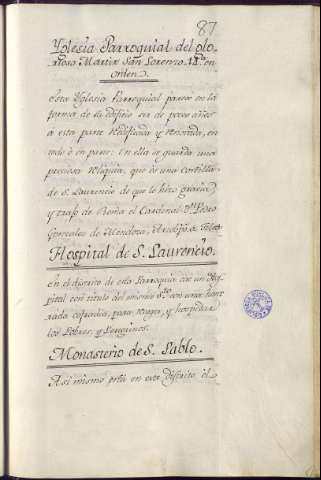 87
Yglesia Parroquial del glo-
rioso Martir San Lorenzo 11ª en
orden.
Esta Yglesia Parroquial parece en la
forma de su edificio ser de pocos años
a esta parte redificada y renovada, en
todo o en parte. En ella se guarda una
preciosa reliquia, que es una costilla
de S. Laurencio de que le hizo gracia
y trajo de Roma el Cardenal Dn. Pedro
Gonzalez de Mendoza, Arzobpo. de Toledo
Hospital de S. Laurencio.
En el distrito de esta Parroquia cae un Hos-
pital con titulo del mismo Sto. con una hon-
rada cofradia, para, y hospedar
los Pobres, y Peregrinos.
Monasterio de S. Pablo.
Asi mismo está en este Distrito el